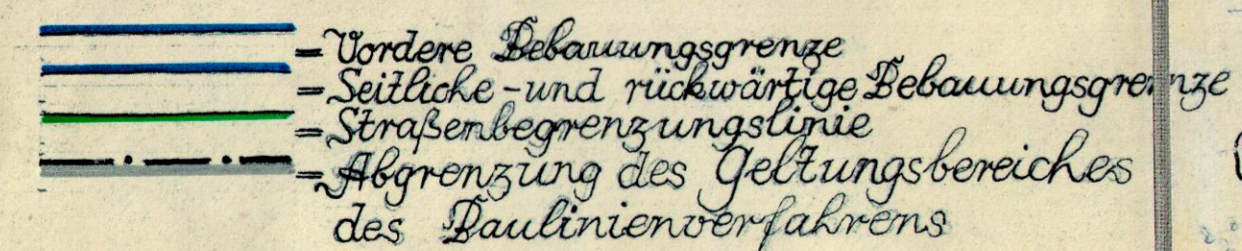 = Vordere Bebauungsgrenze
= Seitliche - und rückwärtige Bebauungsgrenze
= Straßenbegrenzungslinie
= Abgrenzung des Geltungsbereiches
des Baulinienverfahrens